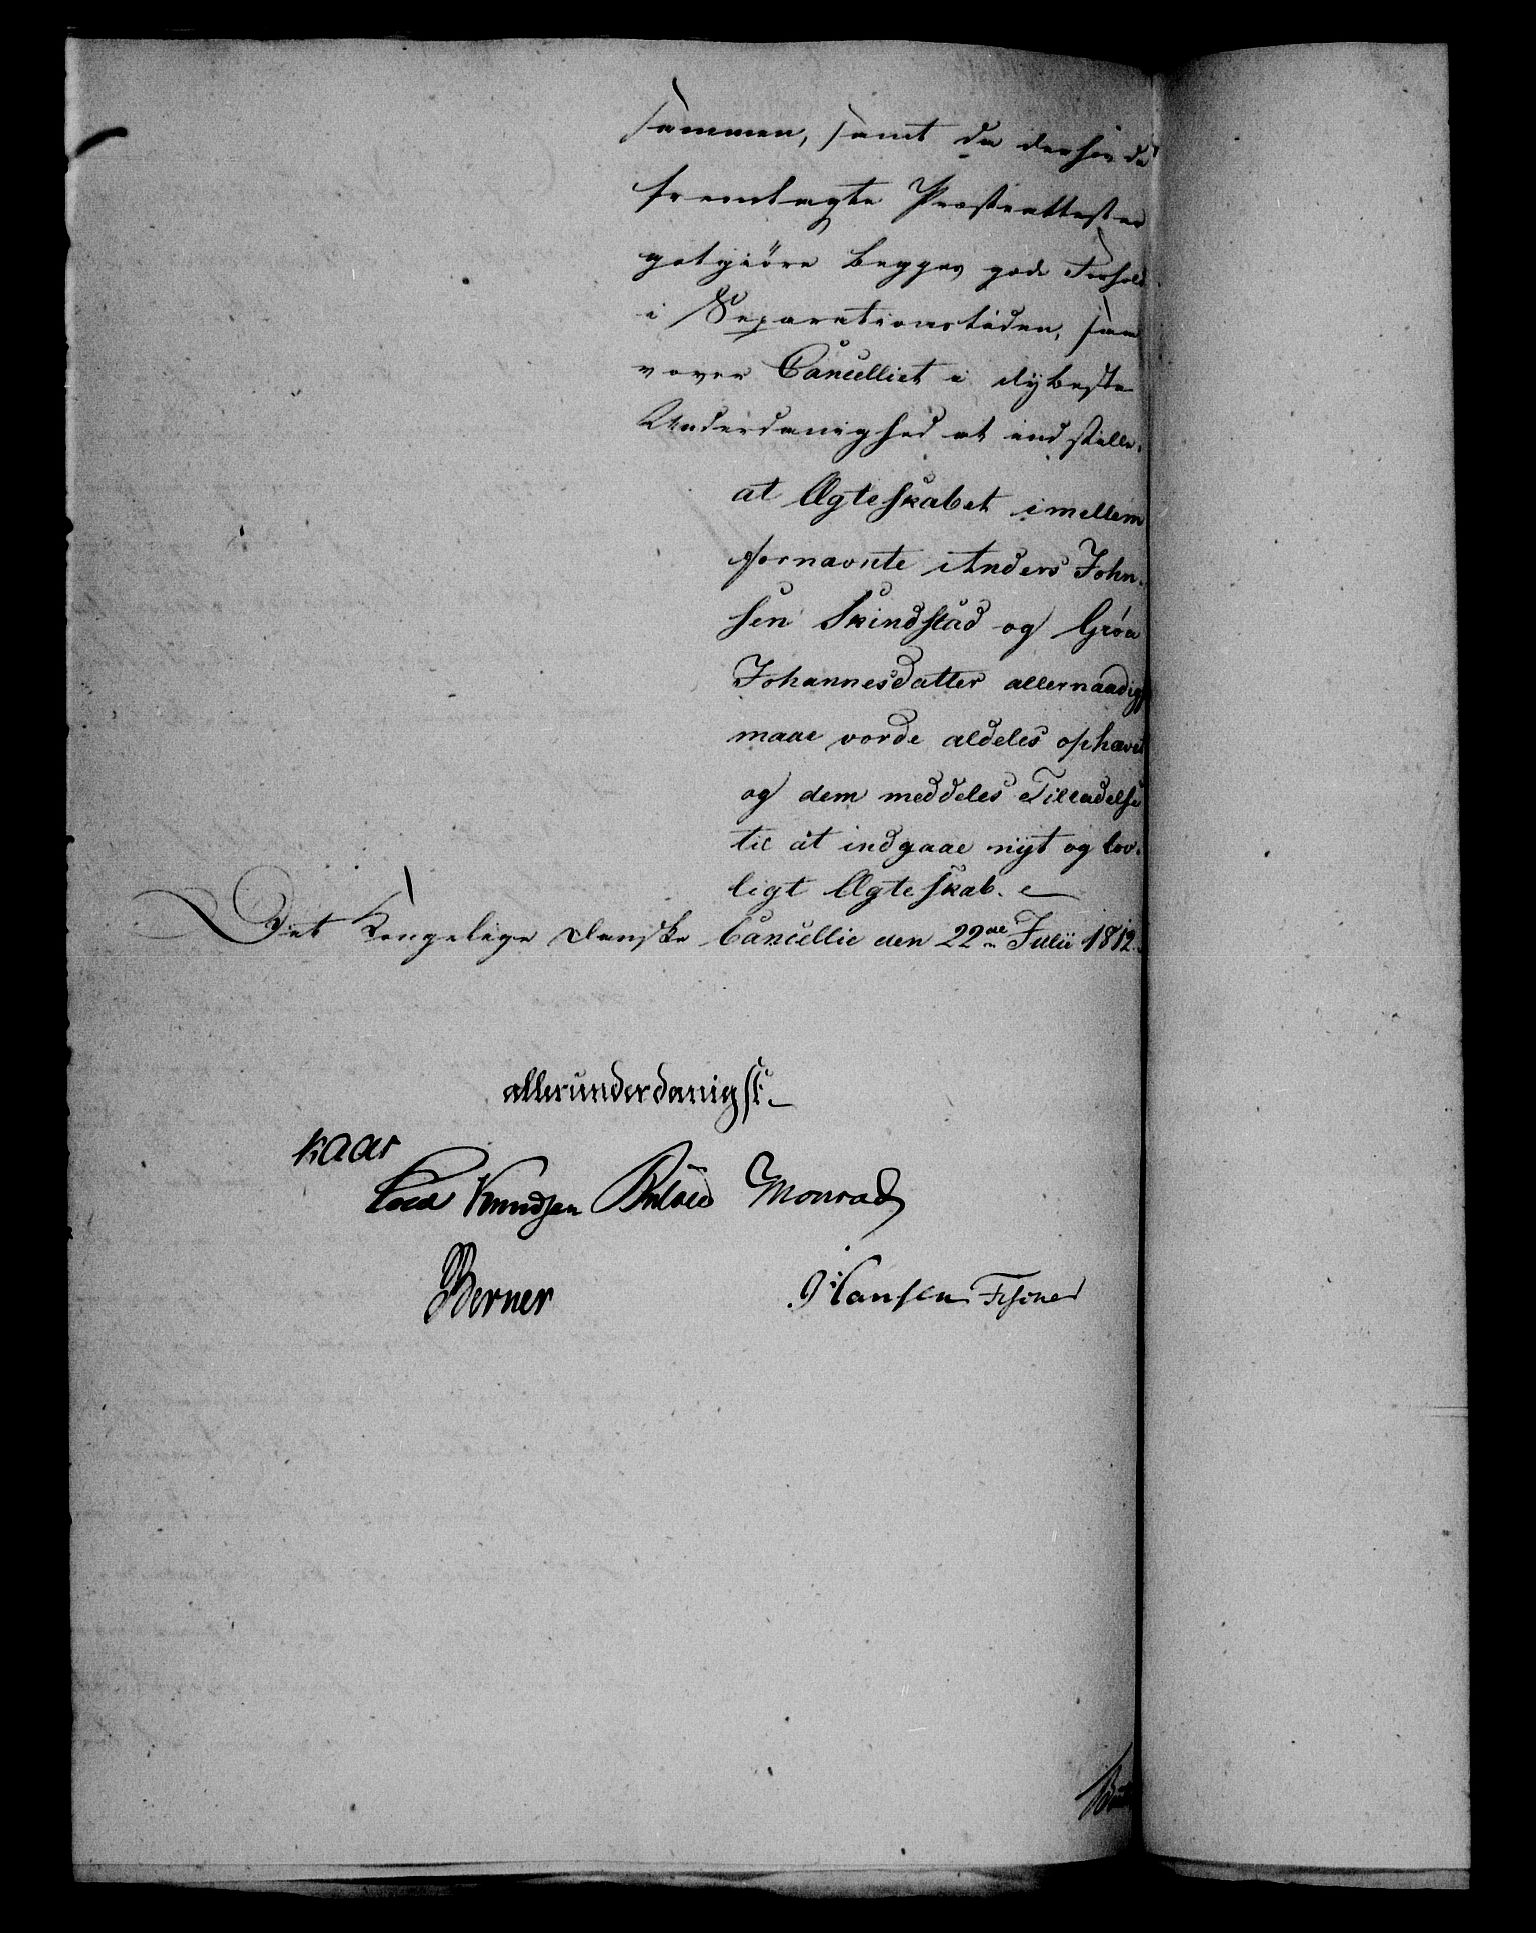 sammen, samt da derhos de
fremlagte Præsteattester
gotgiöre begges gode Forhold
i Separationstiden, saa
vover Cancelliet i dybeste
Underdanighed at indstille:
at Ægteskabet imellem
fornævnte Anders John-
sen Skindstad og Gröe
Johannesdatter allernaadigst
maae vorde aldeles ophævet
og dem meddeles Tilladelse
til at indgaae nyt og lov-
ligt Ægteskab.
Det Kongelige Danske Cancellie den 22de Julii 1812.
allerunderdanigst.
Kaas
Cold Knudsen Bülow Monrad
Berner
Hansen